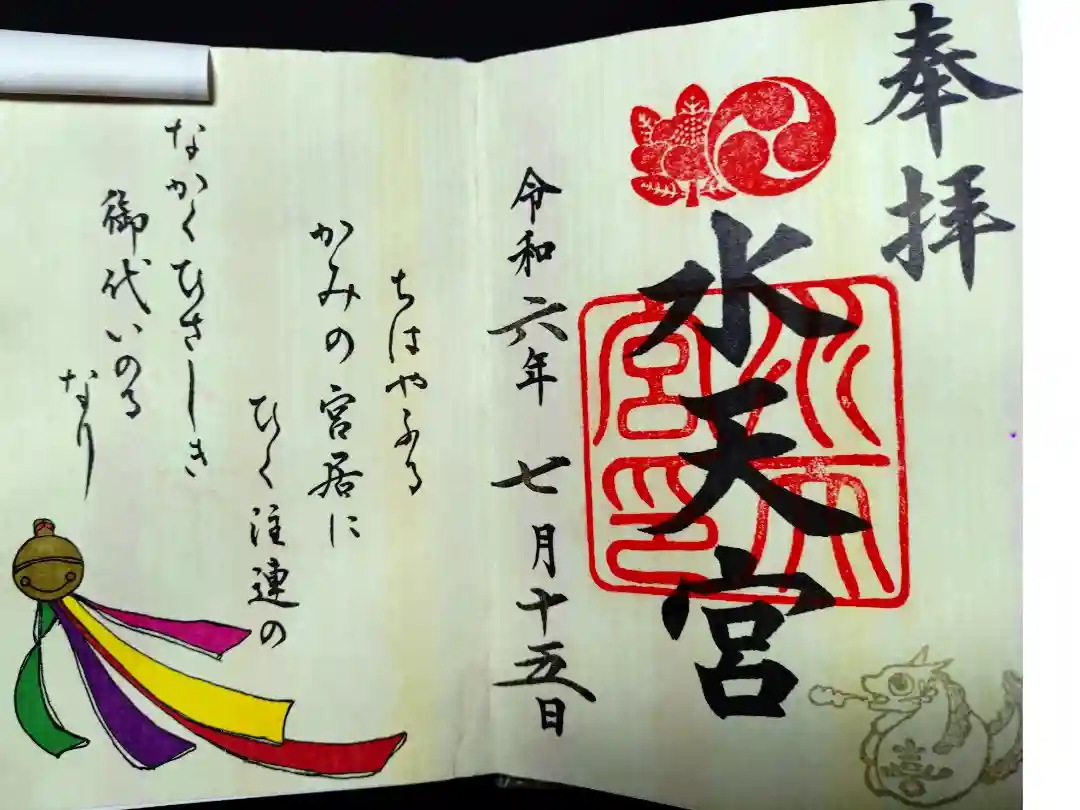 奉拝
水天宮
水天宮印
令和六年 七月十五日
ちはやふる
かみの宮居に
ひく注連の
なかくひさしき
御代いのる
なり
喜